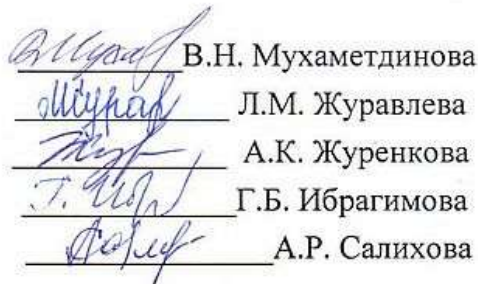 В.Н. Мухаметдинова
Л.М. Журавлева
А.К. Журенкова
Г.Б. Ибрагимова
А.Р. Салихова